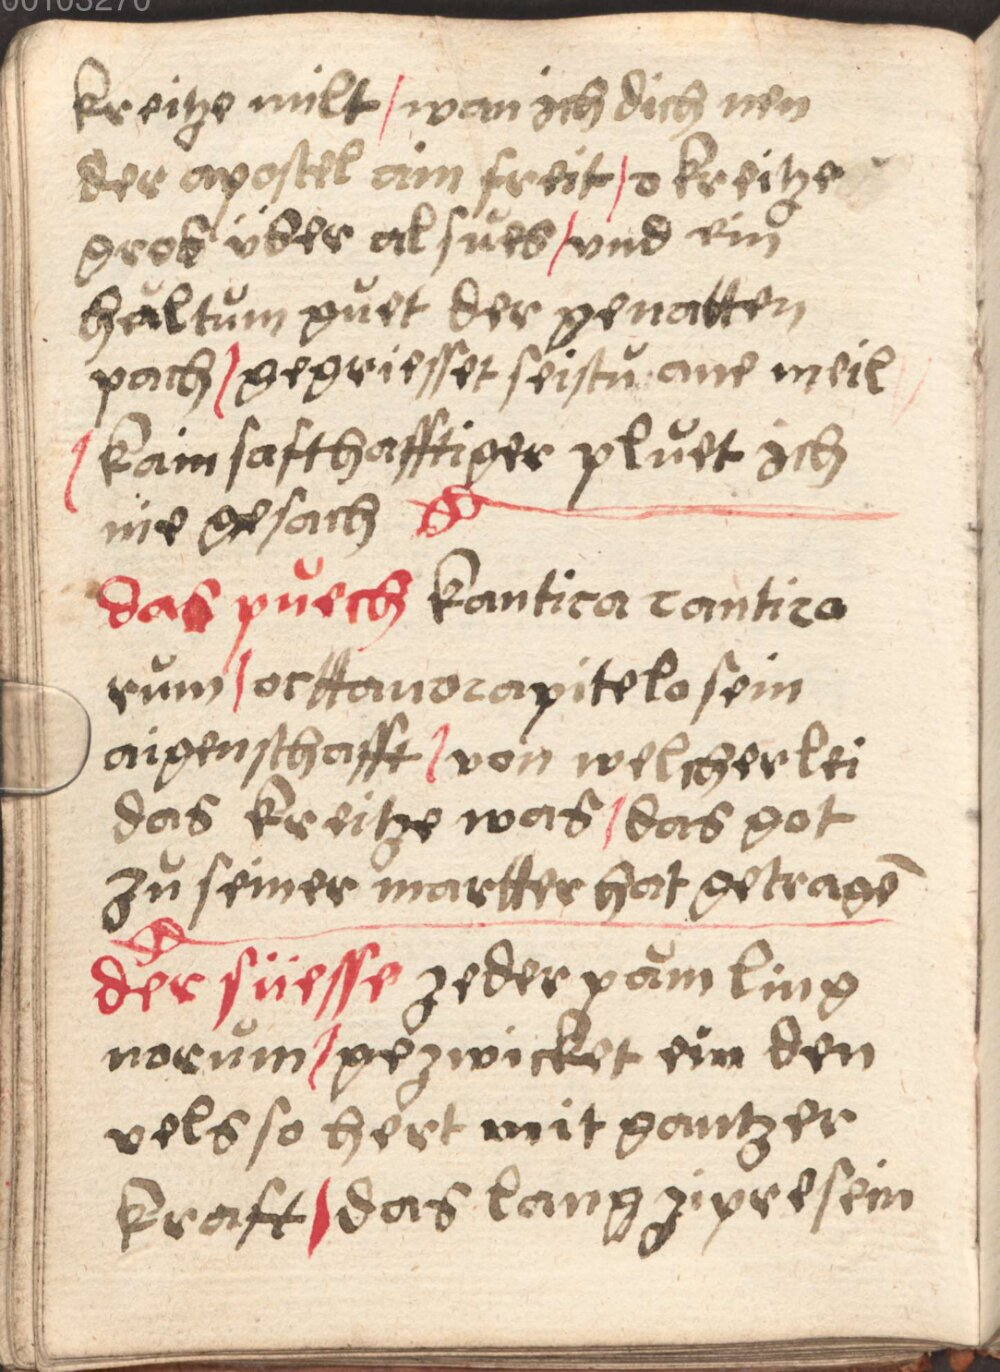 00103270
kreitze milt / wan ich dich nen
der apostel aim freit / o kreitze
gros über al sües / vnd ein
haltum guet der genatten
pach / gegriesset seistu ane meil
/ kain safthafftiger pluet ich
nie gesach
das puech kantica cantico
rum / octtano capitelo sein
aigenschafft / von welcherlei
das kreitze was / das got
zu seiner martter hat getragē
der süesse zeder pam ling
norum / gezwicket ein den
vels so hert mit gantzer
kraft / das lang zipresein